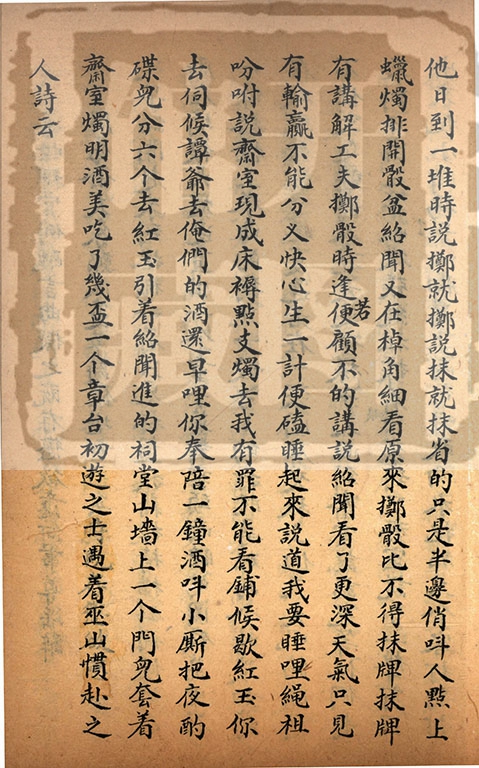 他日到一堆時説擲就擲説抹就抹省的只是半邊俏呌人㸃上
蠟燭排開骰盆紹聞又在棹角細看原來擲骰比不得抹牌抹牌
有講解工夫擲骰時逢若便顧不的講説紹聞看了更深天氣只見
有輸贏不能分义快心生一計便磕睡起來説道我要睡哩繩祖
吩咐説齋室現成床褥㸃支燭去我有罪不能看鋪候歇紅玉你
去伺候譚爺去俺們的酒還早哩你奉陪一鐘酒呌小厮把夜酌
碟兒分六个去紅玉引着紹聞進的祠堂山墻上一个門兒套着
齋室燭明酒美吃了幾盃一个章台初遊之士遇着巫山慣赴之
人詩云